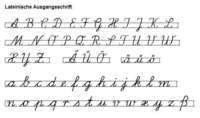 Lateinische Ausgangsschrift
A B C D E F G H I J K L
M N O P Q R S T U V W
X Y Z Ä Ü Ö ä ü ö
a b c d e f g h i j k l m
n o p q r s t u v w x y z ß